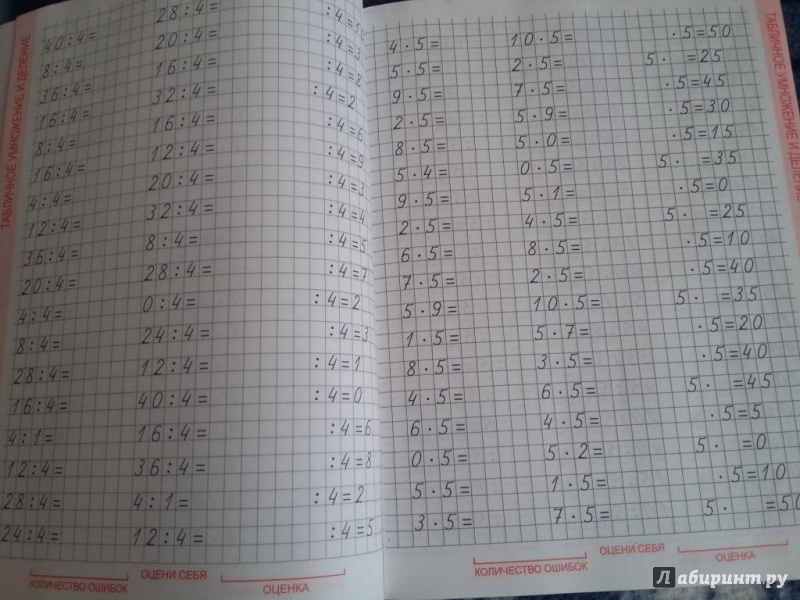 ТАБЛИЧНОЕ УМНОЖЕНИЕ И ДЕЛЕНИЕ
40:4= 28:4= :4=1
8:4= 20:4= :4=3
36:4= 16:4= :4=8
16:4= 32:4= :4=2
8:4= 16:4= :4=6
16:4= 12:4= :4=9
4:4= 20:4= :4=3
12:4= 32:4= :4=4
36:4= 8:4= :4=5
20:4= 28:4= :4=7
4:4= 0:4= :4=2
8:4= 24:4= :4=3
28:4= 12:4= :4=1
16:4= 40:4= :4=0
4:1= 16:4= :4=6
12:4= 36:4= :4=8
28:4= 4:1= :4=2
24:4= 12:4= :4=5
КОЛИЧЕСТВО ОШИБОК ОЦЕНИ СЕБЯ ОЦЕНКА
4·5= 10·5= ·5=50
5·5= 2·5= 5· =25
9·5= 7·5= ·5=45
2·5= 5·9= ·5=30
8·5= 5·0= ·5=15
5·4= 0·5= 5· =35
9·5= 5·1= ·5=0
2·5= 4·5= 5· =25
6·5= 8·5= ·5=10
7·5= 2·5= ·5=40
5·9= 10·5= 5· =35
1·5= 5·7= ·5=20
8·5= 3·5= ·5=40
4·5= 6·5= 5· =45
6·5= 4·5= ·5=5
0·5= 5·2= 5· =0
5·5= 1·5= ·5=10
3·5= 7·5= 5· =50
КОЛИЧЕСТВО ОШИБОК ОЦЕНИ СЕБЯ ОЦЕНКА
ТАБЛИЧНОЕ УМНОЖЕНИЕ И ДЕЛЕНИЕ
Лабиринт.ру